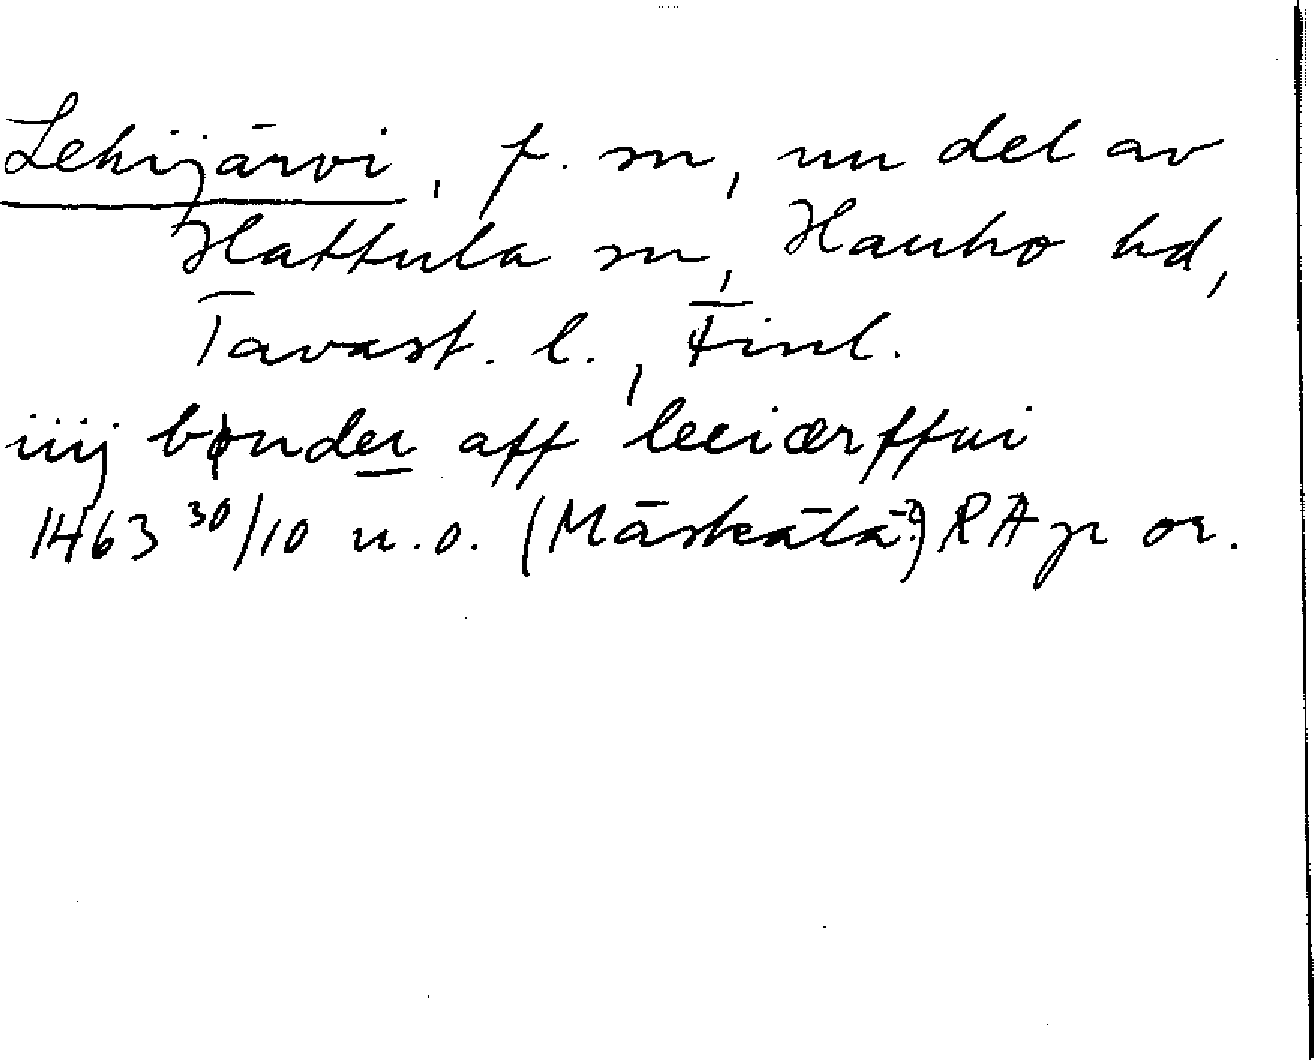 Lehijärvi, f. sn, nu del av
Hattula sn, Hauho hd,
Tavast. l., Finl.
iiij bønder aff leeiærffui
1463 30/10 u.o. (Mäskälä?) RAp or.